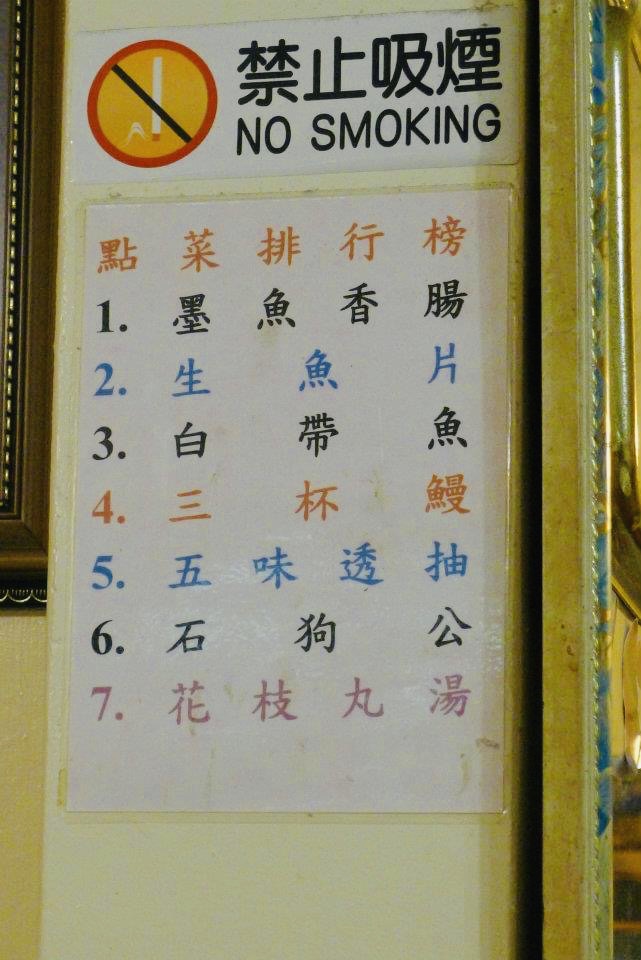 禁止吸煙
NO SMOKING
點菜排行榜
1. 墨魚香腸
2. 生魚片
3. 白帶魚
4. 三杯鰻
5. 五味透抽
6. 石狗公
7. 花枝丸湯